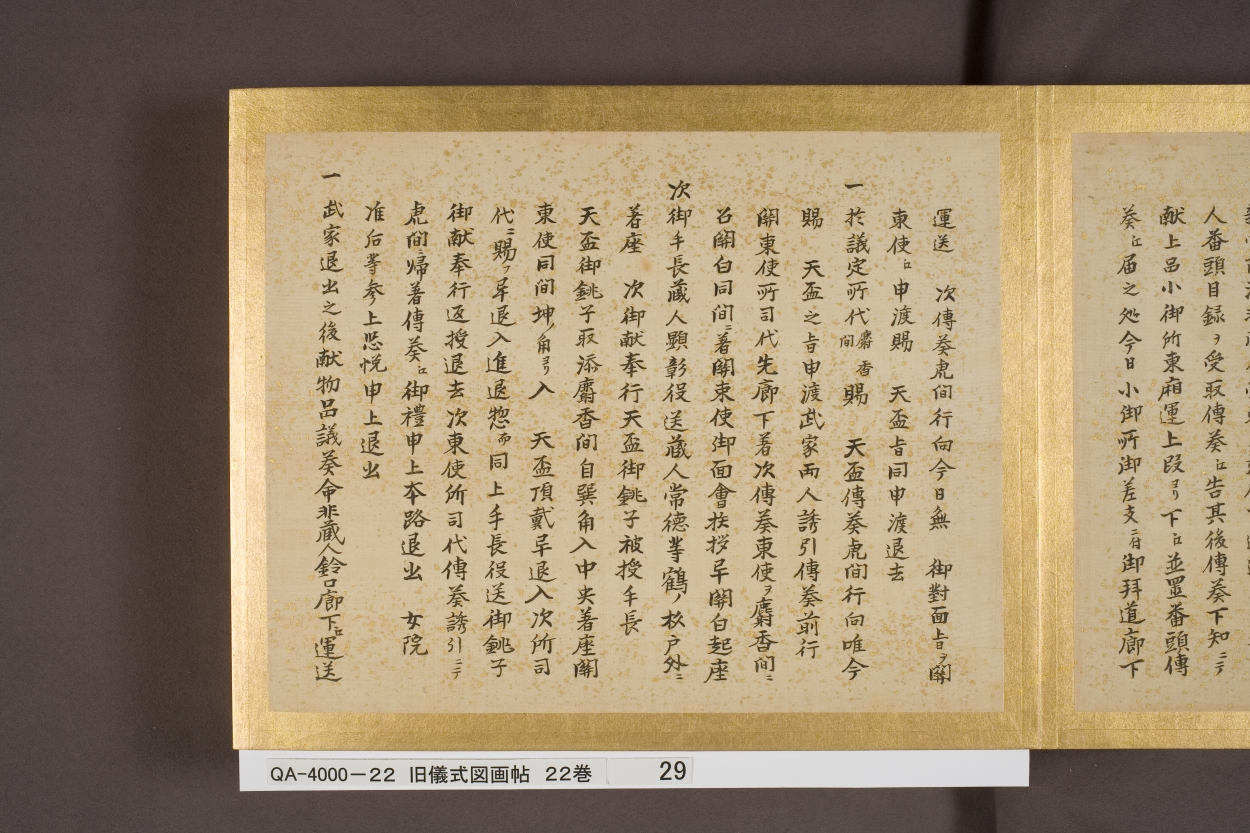 献上呂小御所東廂運上段ヨリ下江並置番頭傳
人番頭目録ヲ受取傳奏江告其後傳奏下知ニテ
奏江届之処今日小御所御差支ニ付御拜道廊下
運送　次傳奏虎間行向今日無　御對面旨ヲ關
東使江申渡賜　天盃旨同申渡退去
一 於議定所代麝香間賜　天盃傳奏虎間行向唯今
賜　天盃之旨申渡武家兩人誘引傳奏前行
關東使所司代先廊下著次傳奏東使ヲ麝香間ニ
召關白同間ニ著關東使御面會挨拶早關白起座
次御手長藏人顕彰役送藏人常德等鶴ノ杉戸外ニ
著座　次御献奉行天盃御銚子被授手長
天盃御銚子取添麝香間自巽角入中央著座關
東使同間坤ノ角ヨリ入　天盃頂戴早退入次所司
代ニ賜フ早退入進退惣而同上手長役送御銚子
御献奉行返授退去次東使所司代傳奏誘引ニテ
虎間帰著傳奏江御禮申上本路退出　女院
准后等参上恐悦申上退出
一 武家退出之後献物呂議奏命非藏人鈴口廊下江運送
QA-4000-22 旧儀式図画帖 22巻 29